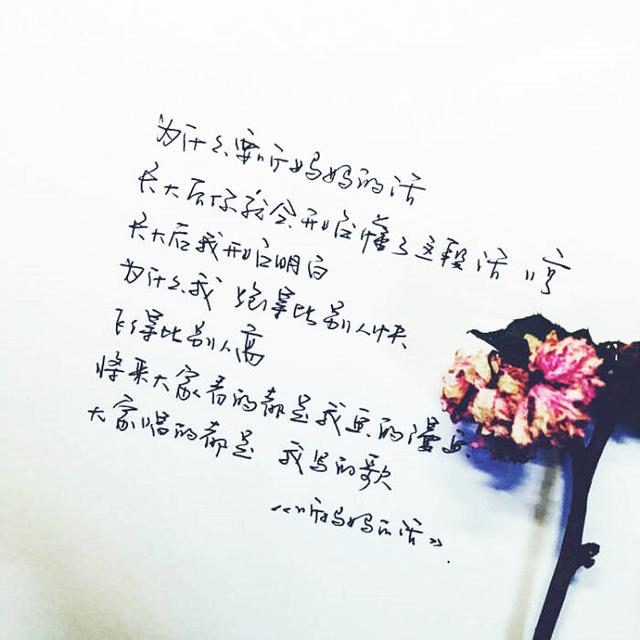 为什么要听妈妈的话
长大后你就会开始懂了这段话 哼
长大后我开始明白
为什么我 跑得比别人快
飞得比别人高
将来大家看的都是我画的漫画
大家唱的都是 我写的歌
《听妈妈的话》.